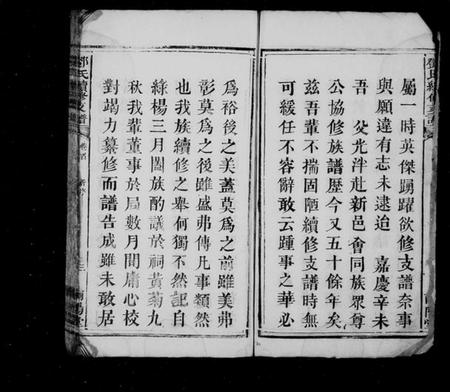 屬一時英傑踴躍欲修支譜奈事
與願違有志未逮迨 嘉慶辛未
吾 父光泮赴新邑會同族眾尊
公協修族譜歷今又五十餘年矣
茲吾輩不揣固陋續修支譜時無
可緩任不容辭敢云踵事之華必
為裕後之美蓋莫為之前雖美弗
彰莫為之後雖盛弗傳凡事類然
也我族續修之舉何獨不然記自
綠楊三月闔族酌議於祠黃菊九
秋我輩董事於局數月間庸心校
對竭力纂修而譜告成雖未敢居
鄧氏續修支譜